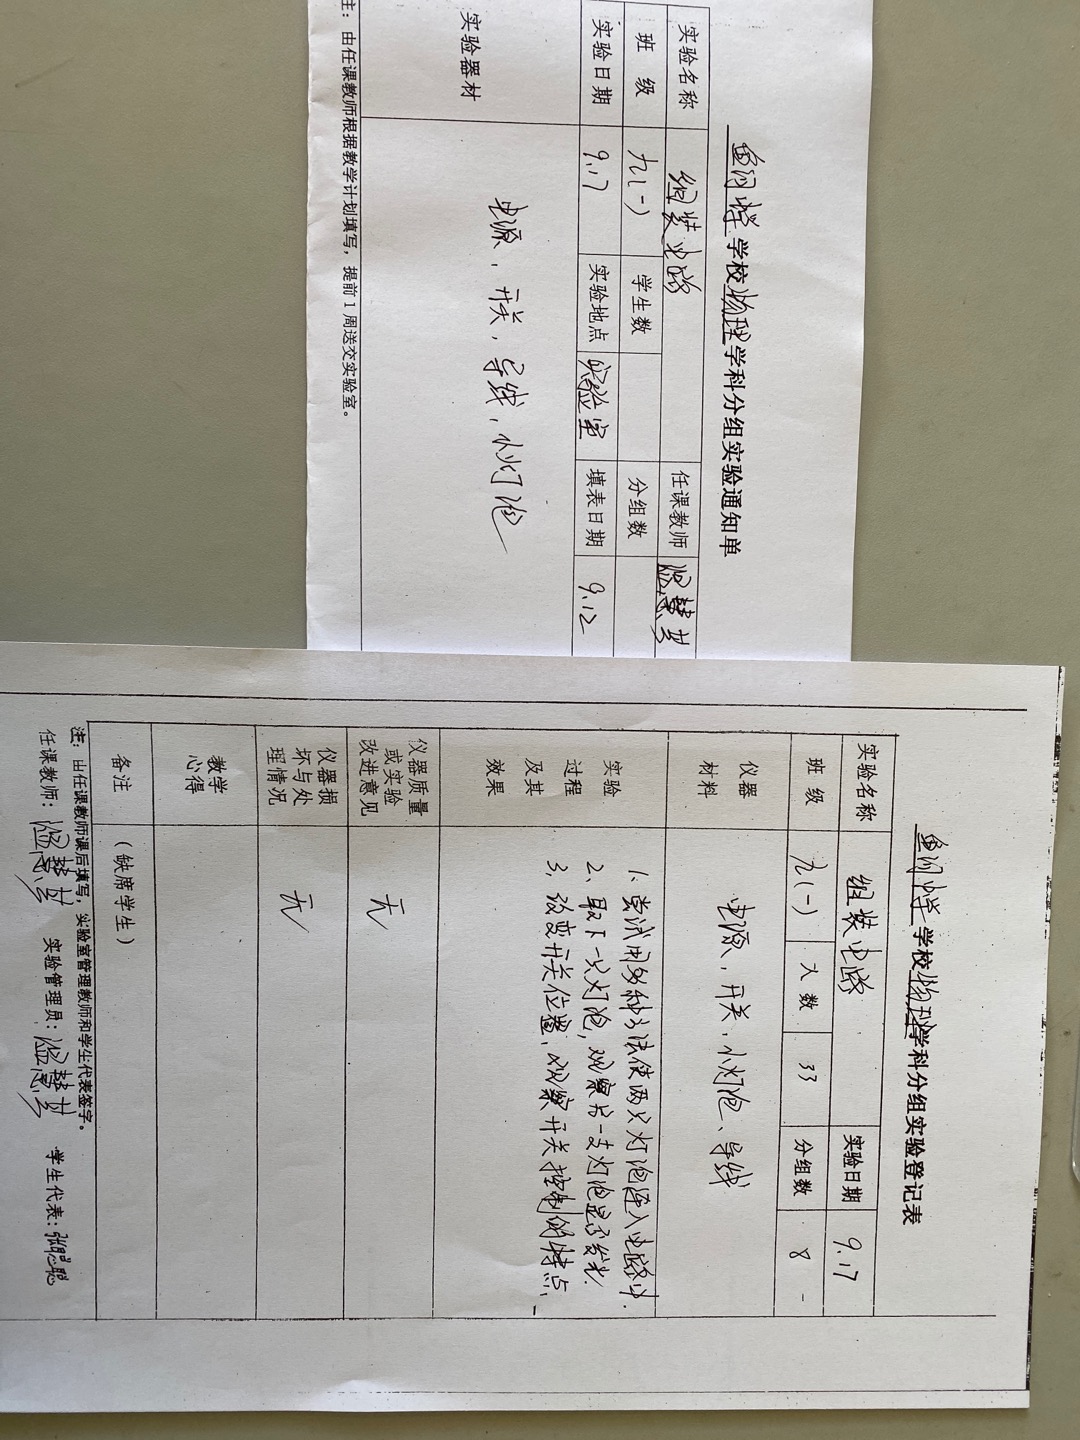 鱼河中学学校物理学科分组实验通知单
实验名称 组装电路 任课教师
班 级 九(一) 学生数 分组数
实验日期 9.17 实验地点 实验室 填表日期 9.12
实验器材 电源、开关、导线、小灯泡
注：由任课教师根据教学计划填写，提前1周送交实验室。
鱼河中学学校物理学科分组实验登记表
实验名称 组装电路 实验日期 9.17
班 级 九(一) 人 数 33 分组数 8
仪器材料 电源、开关、小灯泡、导线
实验过程及其效果
1、尝试用多种方法使两只灯泡连入电路中.
2、取下一只灯泡，观察另一支灯泡是否发光.
3、改变开关位置，观察开关控制的特点、
仪器质量或实验改进意见 无
仪器损坏与处理情况 无
教学心得
备注 （缺席学生）
注：由任课教师课后填写，实验室管理教师和学生代表签字。
任课教师： 实验管理员： 学生代表：